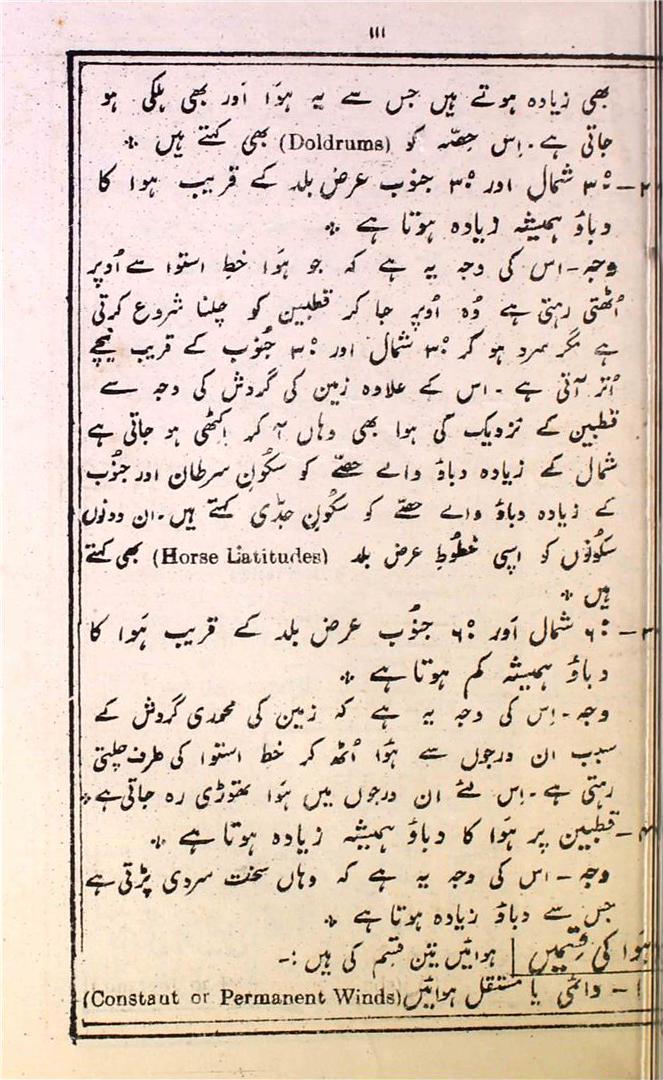 ۱۱۱
بھی زیادہ ہوتے ہیں جس سے یہ ہوَا اَور بھی ہلکی ہو
جاتی ہے۔ اِس حِصّہ کو (Doldrums) بھی کہتے ہیں ٭
۲ـ ۳۰° شمال اور ۳۰° جنوب عرض بلد کے قریب ہوا کا
دباؤ ہمیشہ زیادہ ہوتا ہے ٭
وجہ۔ اس کی وجہ یہ ہے کہ جو ہَوا خطِ استوا سے اُوپر
اُٹھتی رہتی ہے وُہ اُوپر جا کر قطبین کو چلنا شروع کرتی
ہے مگر سرد ہو کر ۳۰° شمال اور ۳۰° جُنوب کے قریب نیچے
اُتر آتی ہے۔ اس کے علاوہ زمین کی گردش کی وجہ سے
قطبین کے نزدیک کی ہوا بھی وہاں آ کر اکٹھی ہو جاتی ہے
شمال کے زیادہ دباؤ والے حصّے کو سکُونِ سرطان اور جنُوب
کے زیادہ دباؤ والے حصّے کو سکُونِ جدّی کہتے ہیں۔ ان دونوں
سکُونوں کو اسپی خطُوطِ عرض بلد (Horse Latitudes) بھی کہتے
ہیں ٭
۳ـ ۶۰° شمال اَور ۶۰° جنُوب عرض بلد کے قریب ہَوا کا
دباؤ ہمیشہ کم ہوتا ہے ٭
وجہ۔ اِس کی وجہ یہ ہے کہ زمین کی محوری گردش کے
سبب ان درجوں سے ہَوا اُٹھ کر خط استوا کی طرف چلتی
رہتی ہے۔ اِس لئے ان درجوں میں ہوا تھوڑی رہ جاتی ہے ٭
۴ـ قطبین پر ہَوا کا دباؤ ہمیشہ زیادہ ہوتا ہے ٭
وجہ۔ اس کی وجہ یہ ہے کہ وہاں سخت سردی پڑتی ہے
جس سے دباؤ زیادہ ہوتا ہے ٭
ہَوا کی قِسمیں | ہوائیں تین قسم کی ہیں :۔
۱ـ دائمی یا مستقل ہوائیں (Constaut or Permanent Winds)